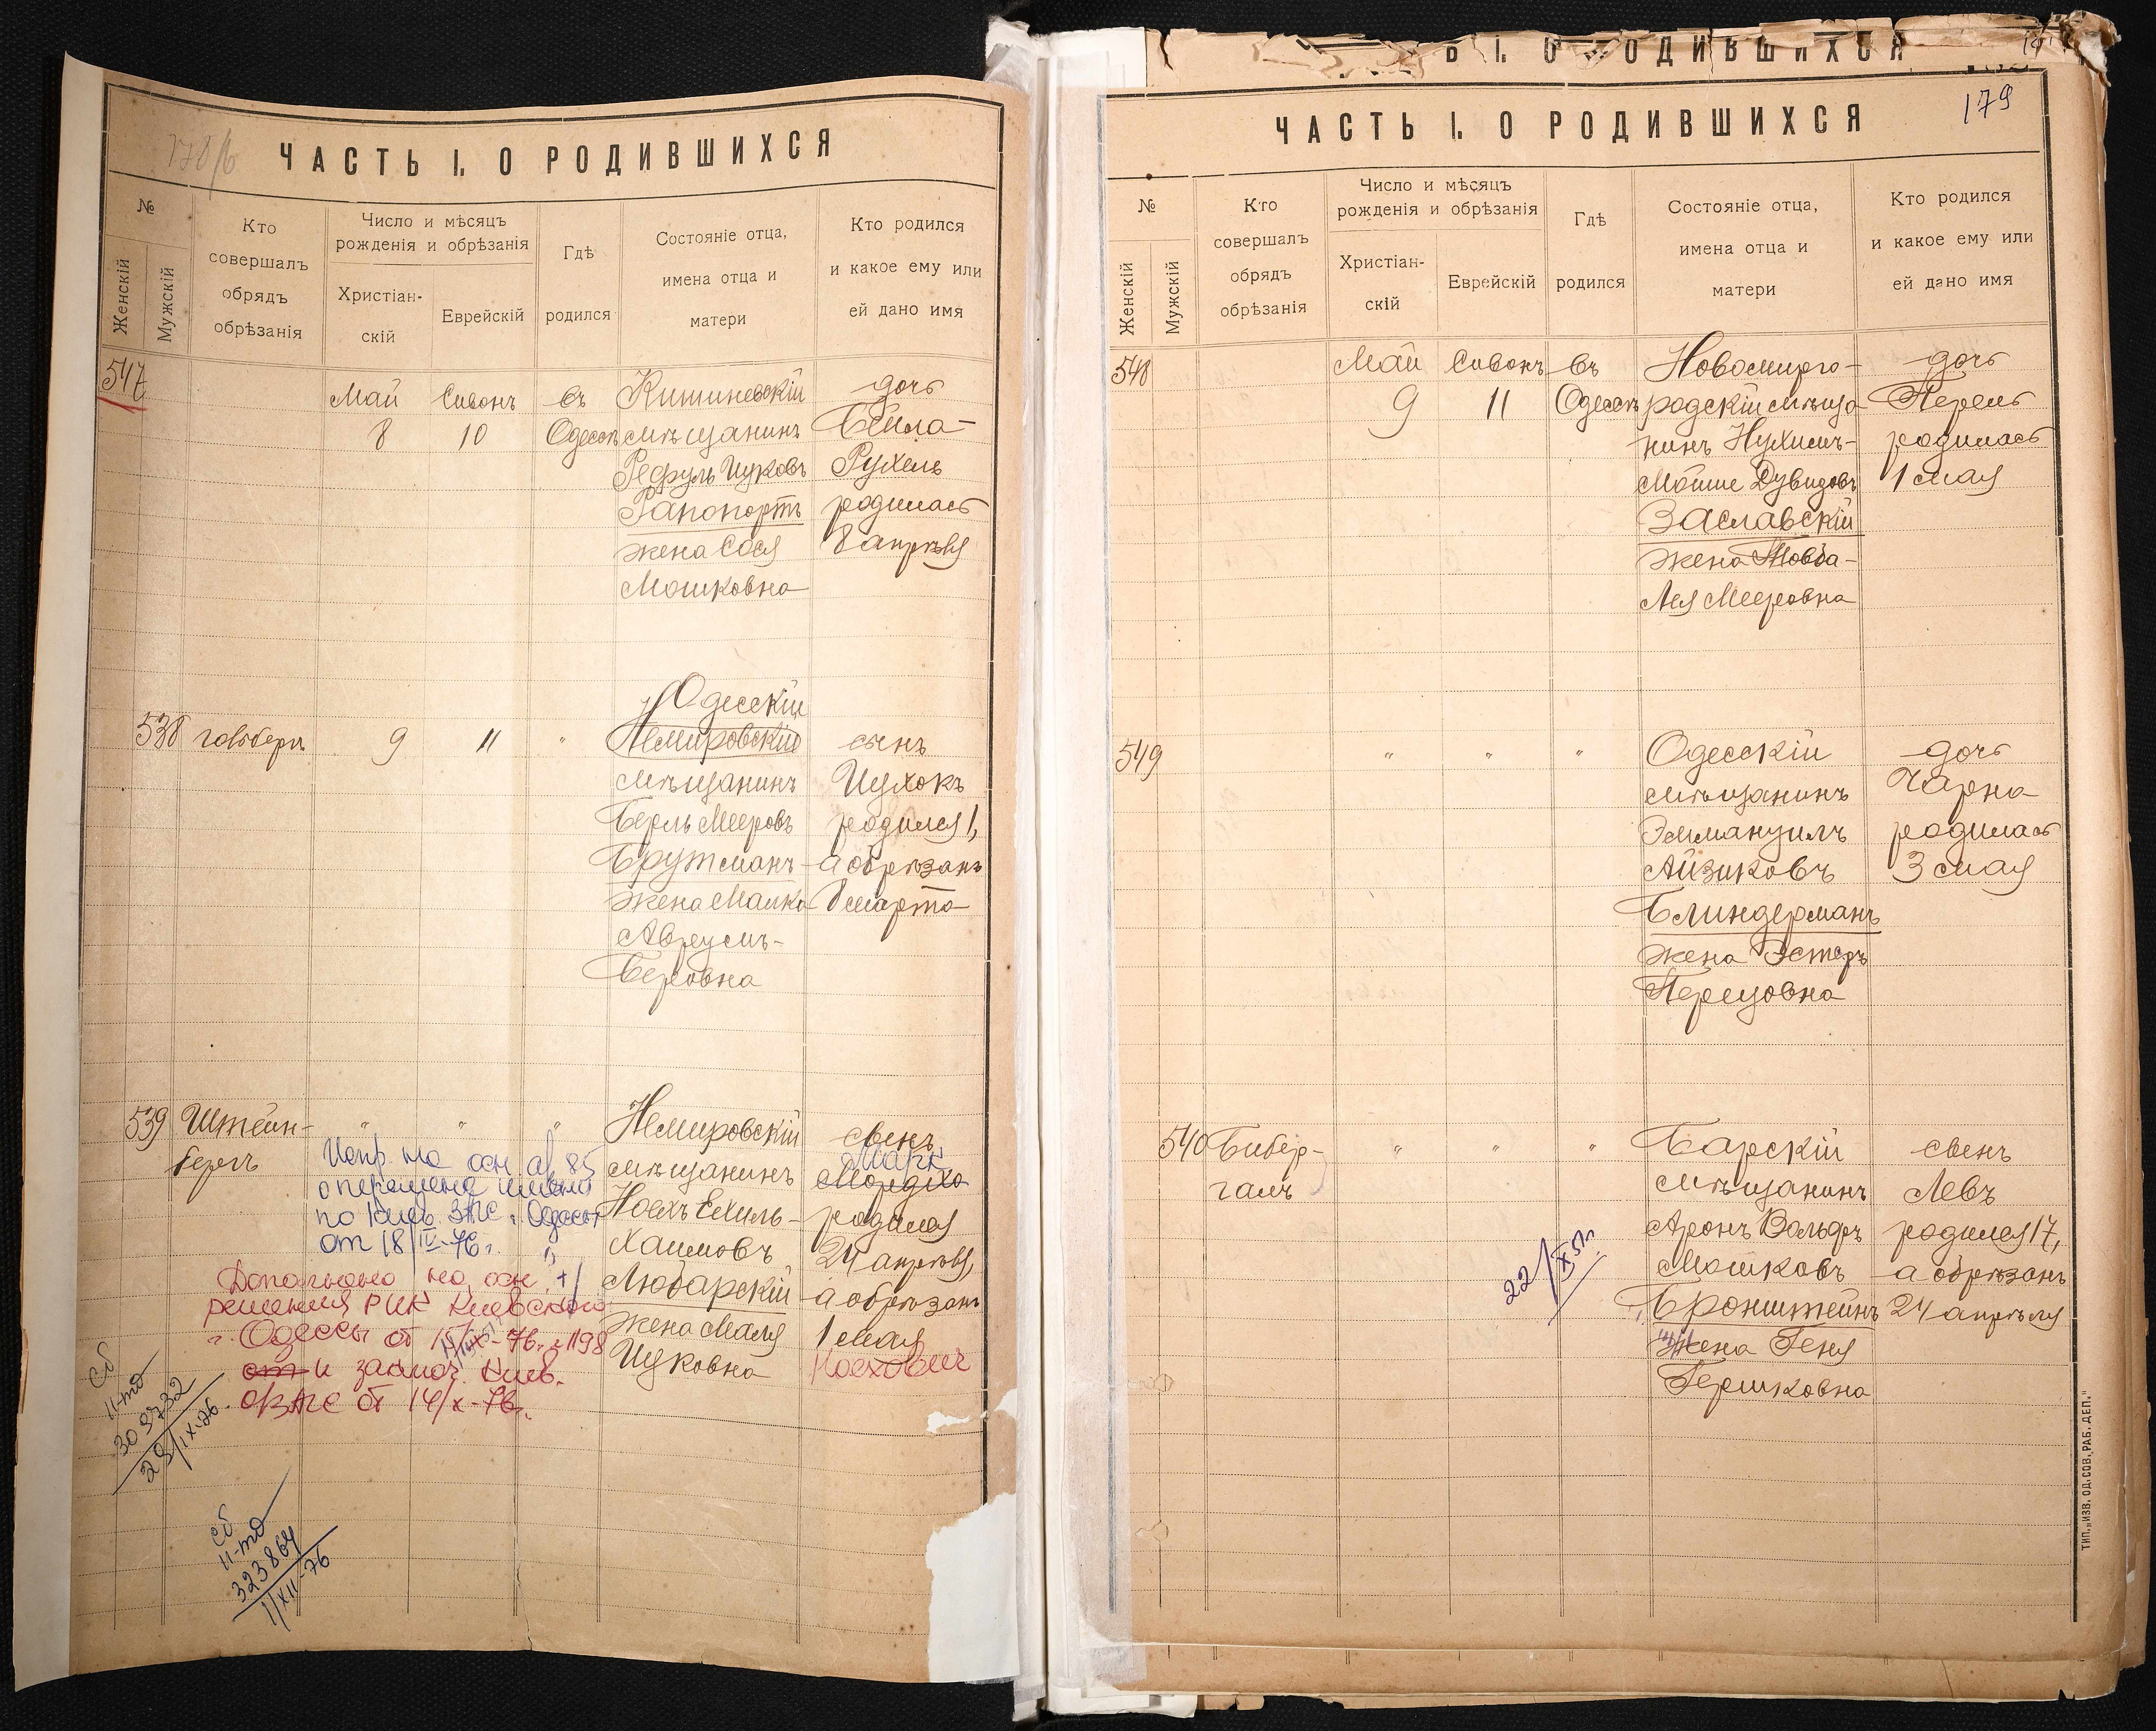 178/б
ЧАСТЬ I. О РОДИВШИХСЯ
№
Женскій
Мужскій
Кто
совершалъ
обрядъ
обрѣзанія
Число и мѣсяцъ
рожденія и обрѣзанія
Христіан-
скій
Еврейскій
Гдѣ
родился
Состояніе отца,
имена отца и
матери
Кто родился
и какое ему или
ей дано имя
547
Май
8
Сивонъ
10
въ
Одессѣ
Кишиневскій
мѣщанинъ
Рефуль Ицковъ
Рапопортъ
жена Сося
Мошковна
дочь
Бейла-
Рухель
родилась
8 апрѣля
538
9
11
"
Одесскій
Немировскій
мѣщанинъ
Берль Мееровъ
Брутманъ
жена Малка
Авреумъ-
Беровна
сынъ
Ицхокъ
родился 1,
а обрѣзанъ
8 марта
539
Штейн-
бергъ
"
"
"
Немировскій
мѣщанинъ
Ноехъ Ехиль-
Хаимовъ
Любарскій
жена Маля
Ицковна
сынъ
Марк
Мордхо
родился
24 апрѣля,
а обрѣзанъ
1 мая
Ноехович
Испр. на осн. а/з 85
о перемене имени
по Киев. ЗАГС г. Одессы
от 18/IV-76г.
Дополнено на осн.
решения РИК Киевского
г. Одессы от 15/IX-76г. № 1198
от и заключ. Киев.
о/ЗАГС от 14/X-76г.
Сб
II-mд
309732
29/IX-76
Сб
II-mд
323864
1/XII-76
ЧАСТЬ I. О РОДИВШИХСЯ
179
ЧАСТЬ I. О РОДИВШИХСЯ
№
Женскій
Мужскій
Кто
совершалъ
обрядъ
обрѣзанія
Число и мѣсяцъ
рожденія и обрѣзанія
Христіан-
скій
Еврейскій
Гдѣ
родился
Состояніе отца,
имена отца и
матери
Кто родился
и какое ему или
ей дано имя
548
Май
9
Сивонъ
11
въ
Одессѣ
Новомирго-
родскій мѣща-
нинъ Нухимъ-
Мойше Дувидовъ
Заславскій
жена Товба-
Лея Мееровна
дочь
Перель
родилась
1 мая
549
"
"
"
Одесскій
мѣщанинъ
Эммануилъ
Айзиковъ
Блиндерманъ
жена Эстеръ
Перецовна
дочь
Чарна
родилась
3 мая
540
Бибер-
галъ
"
"
"
Барскій
мѣщанинъ
Аронъ Вольфъ
Мошковъ
Бронштейнъ
жена Геня
Гершковна
сынъ
Левъ
родился 17,
а обрѣзанъ
24 апрѣля
22/IX 51г.
ТИП. „ИЗВ. ОД. СОВ. РАБ. ДЕП."